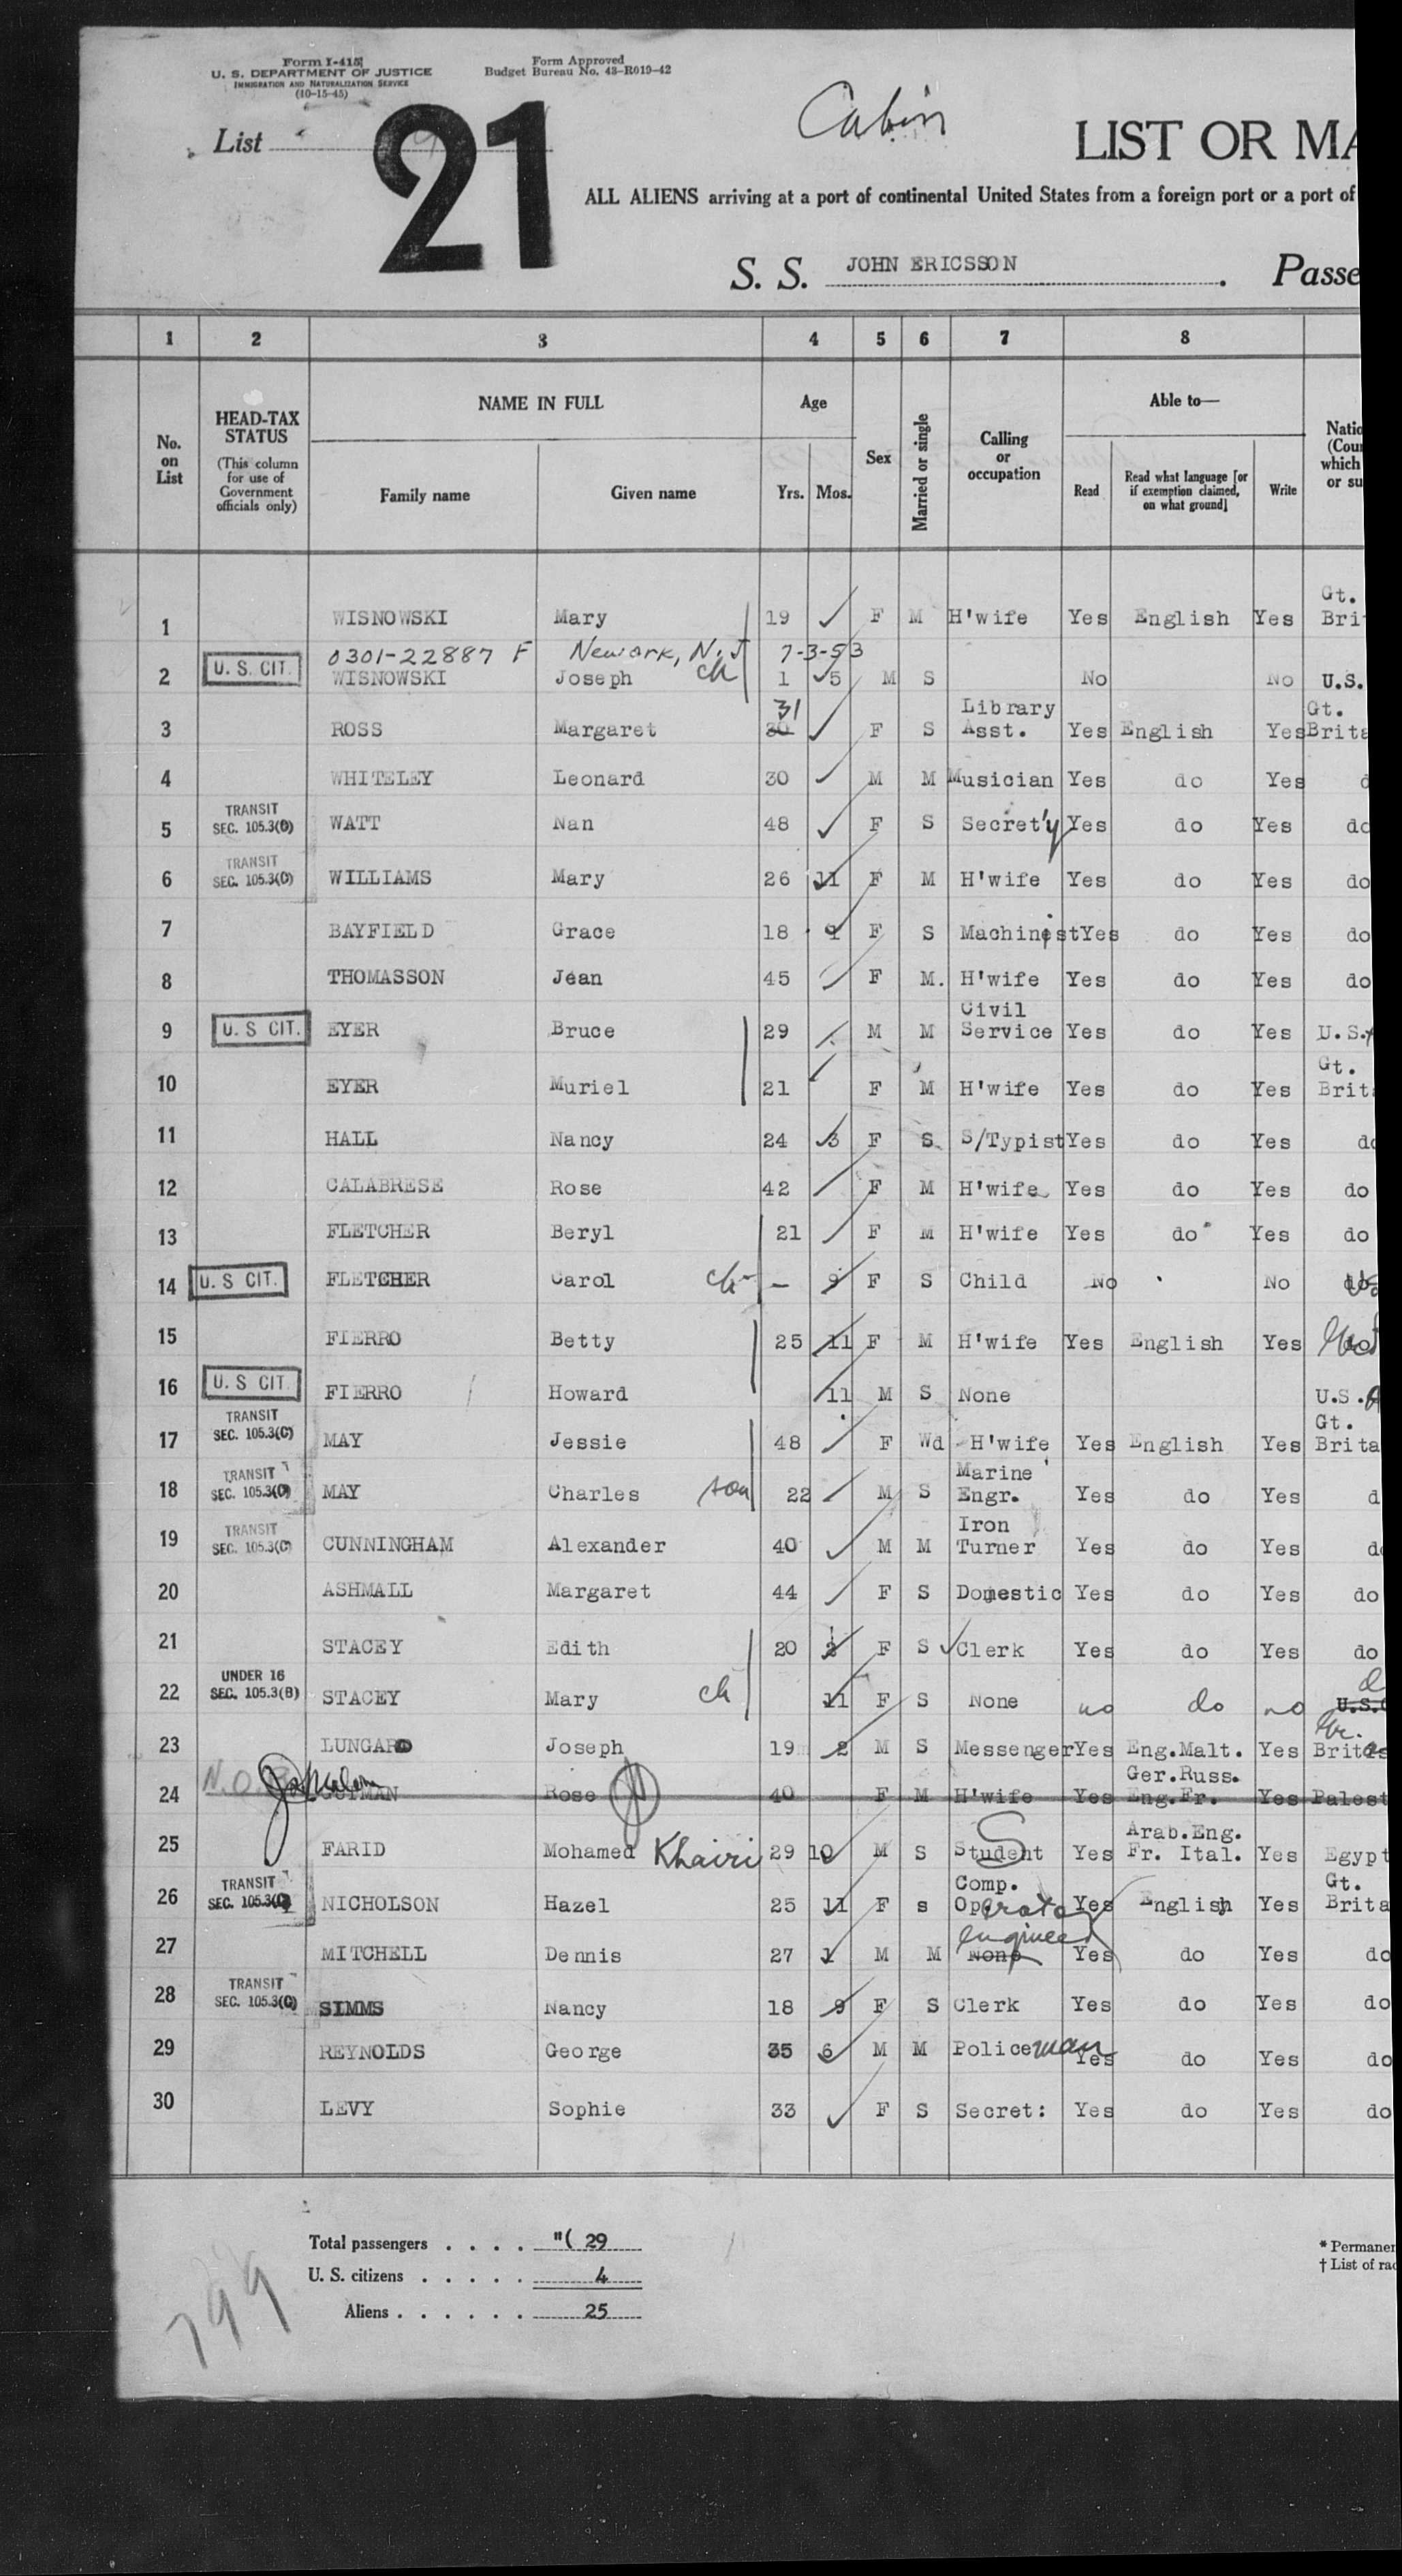 Form I-415
U. S. DEPARTMENT OF JUSTICE
IMMIGRATION AND NATURALIZATION SERVICE
(10-15-45)
Form Approved
Budget Bureau No. 43-R019-42
List
21
Cabin
LIST OR MA
ALL ALIENS arriving at a port of continental United States from a foreign port or a port of
S. S. JOHN ERICSSON. Passe
1 2 3 4 5 6 7 8
No. on List
HEAD-TAX STATUS
(This column for use of Government officials only)
NAME IN FULL
Family name Given name
Age
Yrs. Mos.
Sex
Married or single
Calling or occupation
Able to—
Read
Read what language [or if exemption claimed, on what ground]
Write
Natio
(Cou
which
or su
1 WISNOWSKI Mary 19 F M H'wife Yes English Yes Gt. Bri
0301-22887 F Newark, N.J 7-3-53
2 U. S. CIT. WISNOWSKI Joseph ch 1 5 M S No No U.S.
3 ROSS Margaret 30 31 F S Library Asst. Yes English Yes Gt. Brita
4 WHITELEY Leonard 30 M M Musician Yes do Yes d
5 TRANSIT SEC. 105.3(C) WATT Nan 48 F S Secret'y Yes do Yes do
6 TRANSIT SEC. 105.3(C) WILLIAMS Mary 26 11 F M H'wife Yes do Yes do
7 BAYFIELD Grace 18 F S Machinist Yes do Yes do
8 THOMASSON Jean 45 F M. H'wife Yes do Yes do
9 U. S CIT. EYER Bruce 29 M M Civil Service Yes do Yes U.S.A
10 EYER Muriel 21 F M H'wife Yes do Yes Gt. Brit
11 HALL Nancy 24 3 F S S/Typist Yes do Yes do
12 CALABRESE Rose 42 F M H'wife Yes do Yes do
13 FLETCHER Beryl 21 F M H'wife Yes do Yes do
14 U. S CIT. FLETCHER Carol ch — 9 F S Child No No do
15 FIERRO Betty 25 11 F M H'wife Yes English Yes do
16 U. S CIT. FIERRO Howard 11 M S None U.S.A
17 TRANSIT SEC. 105.3(C) MAY Jessie 48 F Wd H'wife Yes English Yes Gt. Brita
18 TRANSIT SEC. 105.3(C) MAY Charles son 22 M S Marine Engr. Yes do Yes d
19 TRANSIT SEC. 105.3(C) CUNNINGHAM Alexander 40 M M Iron Turner Yes do Yes do
20 ASHMALL Margaret 44 F S Domestic Yes do Yes do
21 STACEY Edith 20 2 F S Clerk Yes do Yes do
22 UNDER 16 SEC. 105.3(B) STACEY Mary ch 11 F S None no do no U.S.
23 LUNGARO Joseph 19 2 M S Messenger Yes Eng.Malt. Yes Brit
24 N.O.B. GUTMAN Rose 40 F M H'wife Yes Ger.Russ. Eng.Fr. Yes Palest
25 FARID Mohamed Khairi 29 10 M S Student S Yes Arab.Eng. Fr. Ital. Yes Egypt
26 TRANSIT SEC. 105.3(C) NICHOLSON Hazel 25 11 F s Comp. Operator Yes English Yes Gt. Brita
27 MITCHELL Dennis 27 1 M M None engineer Yes do Yes do
28 TRANSIT SEC. 105.3(C) SIMMS Nancy 18 9 F S Clerk Yes do Yes do
29 REYNOLDS George 35 6 M M Policeman Yes do Yes do
30 LEVY Sophie 33 F S Secret: Yes do Yes do
Total passengers . . . . 29
U. S. citizens . . . . . 4
Aliens . . . . . . 25
799
* Permaner
† List of rac